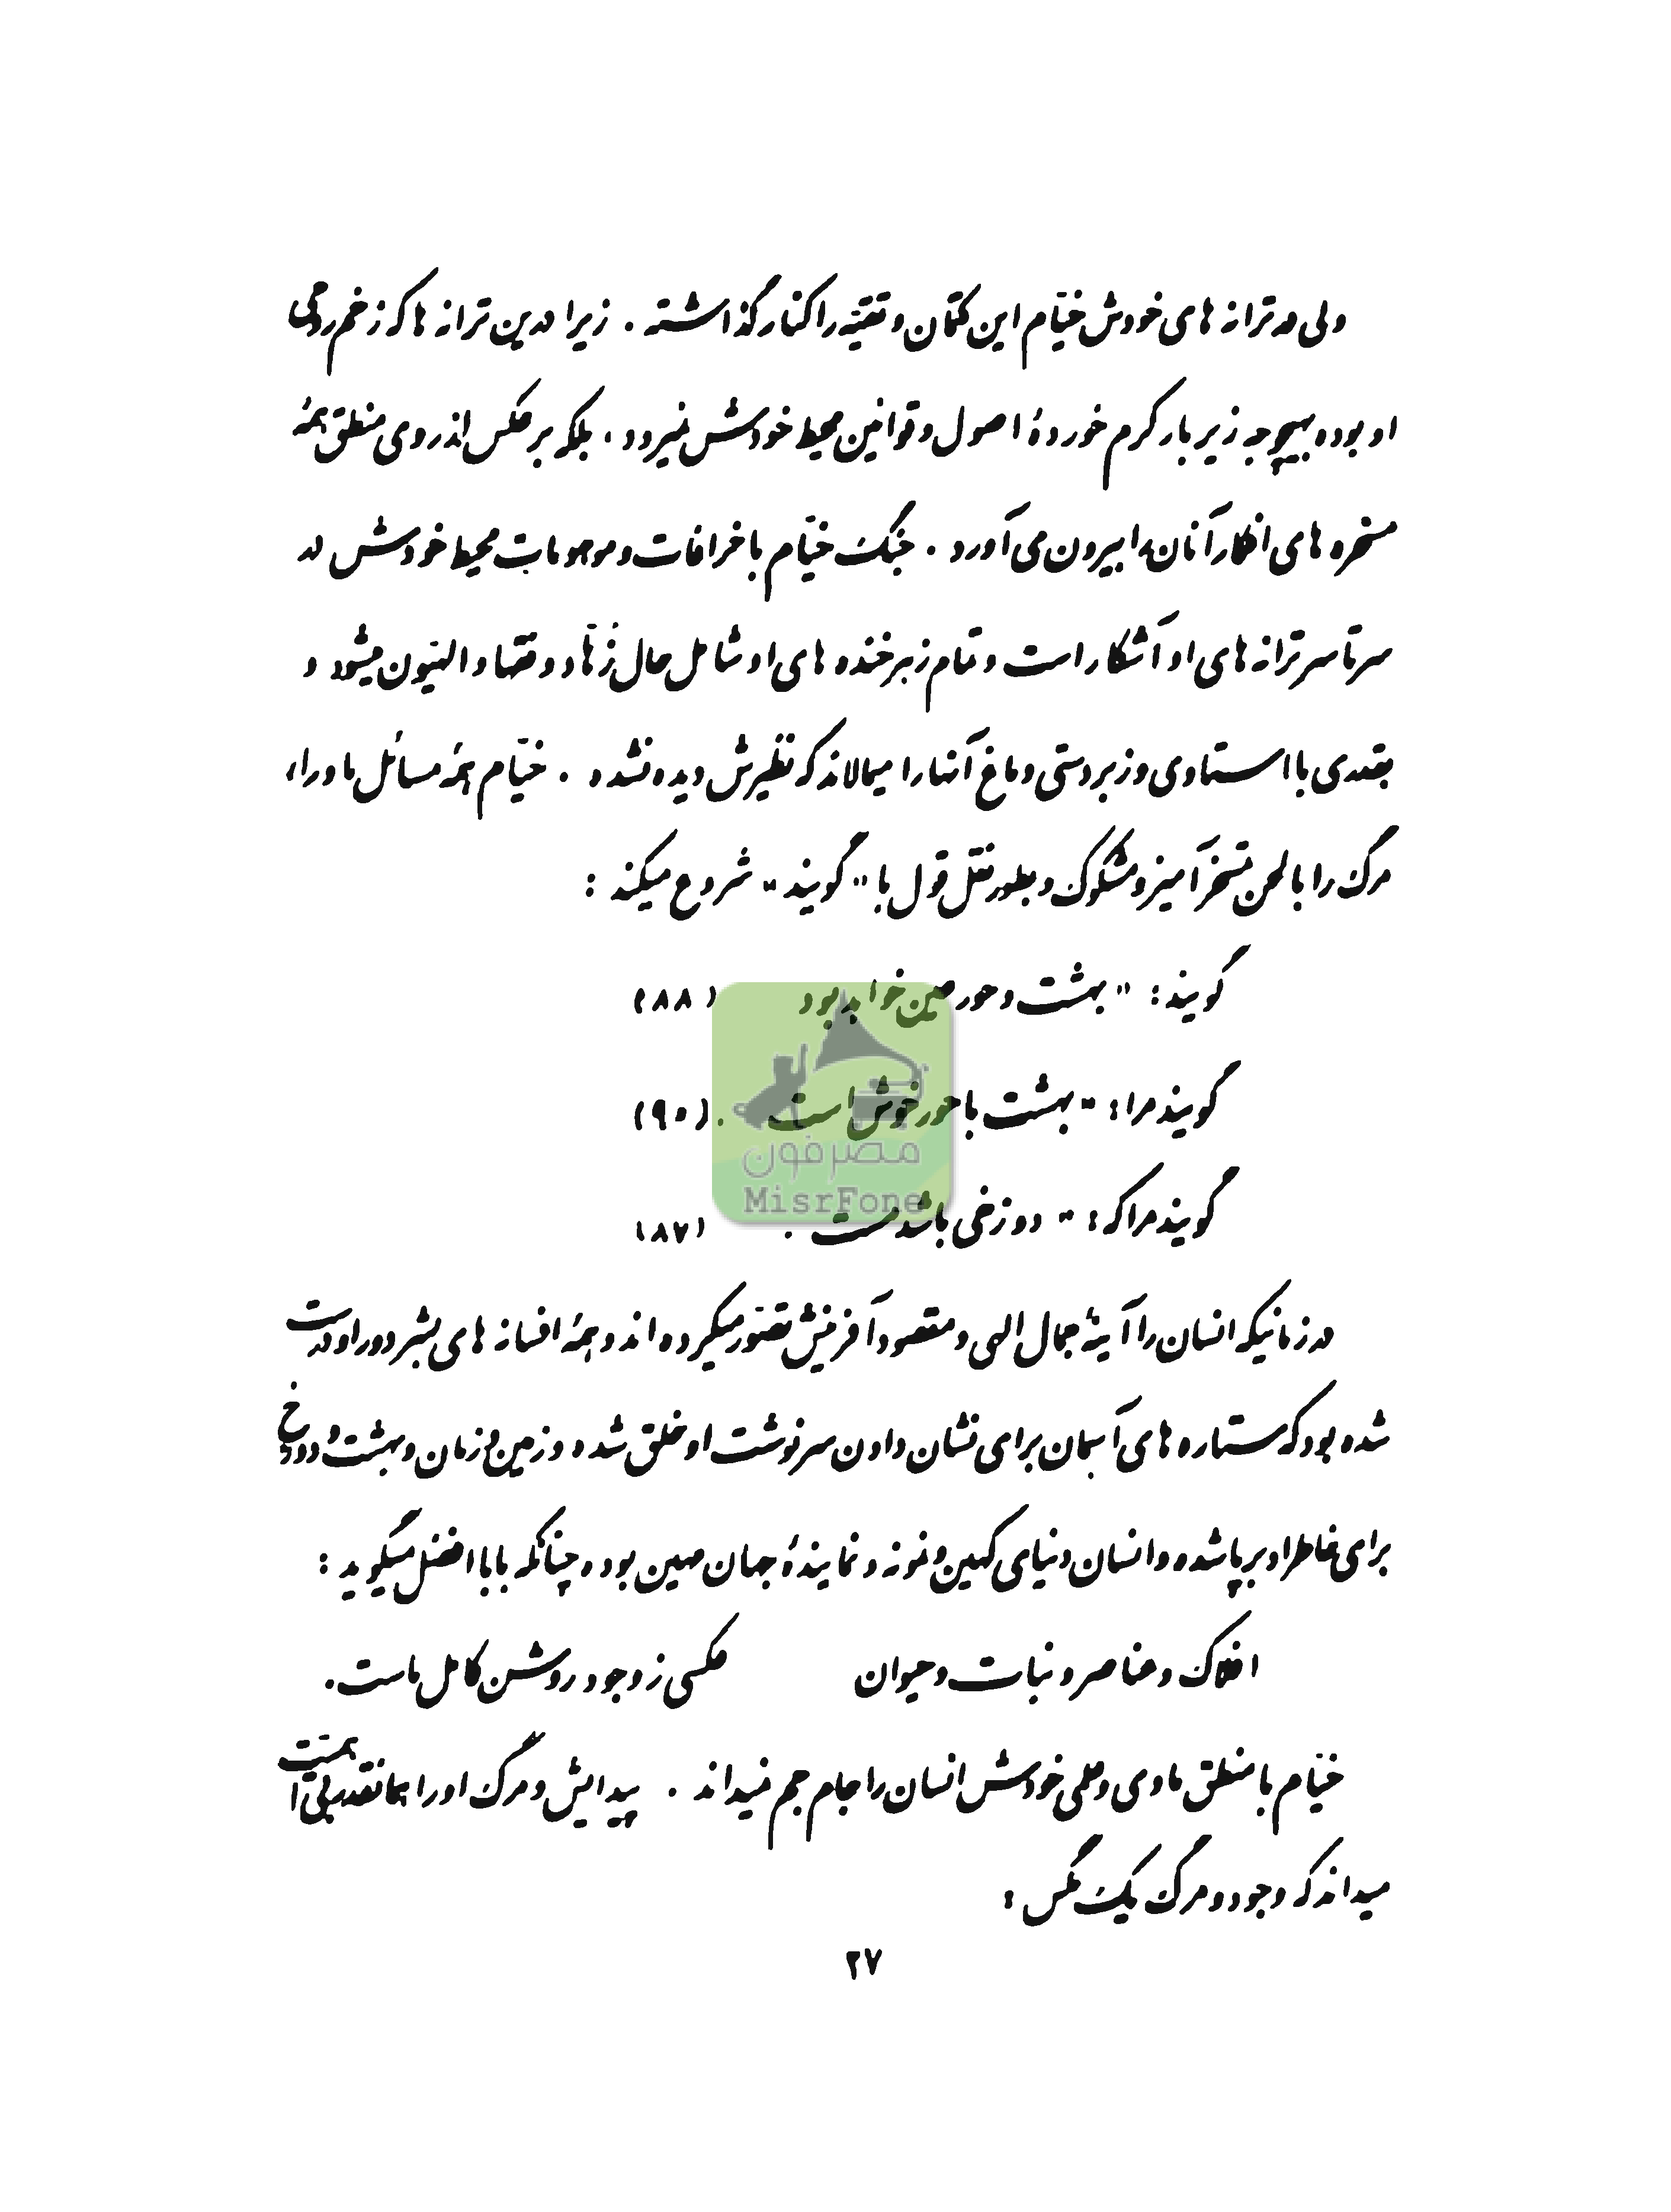 ولی در ترانه های خودش خیّام این کتمان و تقیّه را کنار گذاشته . زیرا درین ترانه ها که زخم روحی
او بوده بهیچوجه زیر بار کرم خوردهٔ اصول و قوانین محیط خودش نمیرود . بلکه بر عکس از روی منطق همهٔ
مسخره های افکار آنان را بیرون می آورد . جنگ خیّام با خرافات و موهومات محیط خودش در
سرتاسر ترانه های او آشکار است و تمام زهرخنده های او شامل حال زُهّاد و فقها و الهیّون میشود و
بقدری با استادی و زبردستی دماغ آنها را میمالاند که نظیرش دیده نشده . خیّام همهٔ مسائل ماوراء
مرگ را با لحن تمسخر آمیز و مشکوک و بطور نقل قول با " گویند " شروع میکند :
گویند : " بهشت و حور عین خواهد بود (۸۸)
گویند مرا : " بهشت با حور خوش است . (۹۰)
گویند مرا که : " دوزخی باشد مست . (۸۷)
در زمانیکه انسان را آینهٔ جمال الهی و مقصود آفرینش تصّور میکرده اند و همهٔ افسانه های بشر دور او درست
شده بود که ستاره های آسمان برای نشان دادن سرنوشت او خلق شده و زمین و زمان و بهشت و دوزخ
برای خاطر او بر پا شده و انسان دنیای کهین و نمونه و نمایندهٔ جهان مهین بوده چنانکه بابا افضل میگوید :
افلاک و عناصر و نبات و حیوان عکسی ز وجود روشن کامل ماست .
خیّام با منطق مادی و علمی خودش انسان را جام جم نمیداند . پیدایش و مرگ او را همانقدر بی اهمیّت
میداند که وجود و مرگ یک مگس :
۲۷
مصرفون
MisrFone